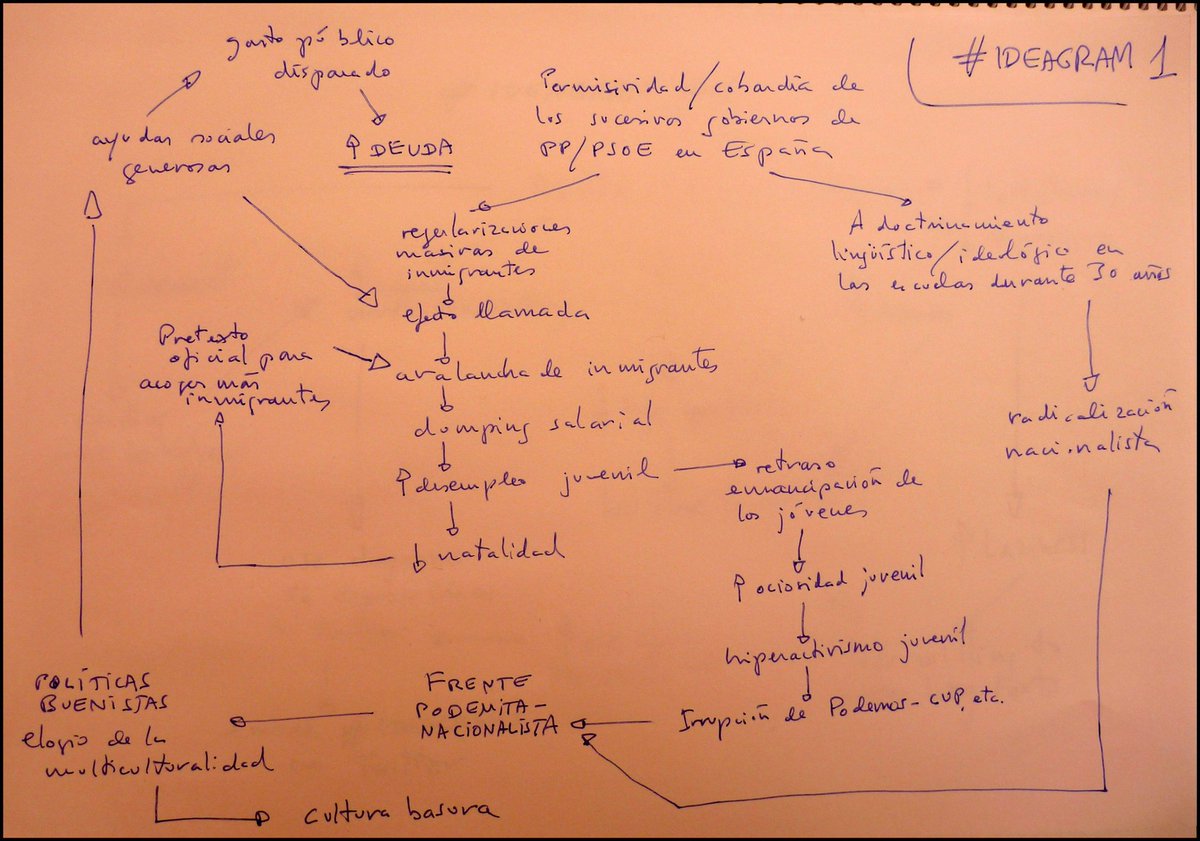 #IDEAGRAM 1
gasto público
disparado
ayudas sociales
generosas
↑ DEUDA
Permisividad/cobardía de
los sucesivos gobiernos de
PP/PSOE en España
regularizaciones
masivas de
inmigrantes
efecto llamada
Adoctrinamiento
lingüístico/ideológico en
las escuelas durante 30 años
Pretexto
oficial para
acoger más
inmigrantes
avalancha de inmigrantes
dumping salarial
↑ desempleo juvenil
↓ natalidad
retraso
emancipación de
los jóvenes
radicalización
nacionalista
↑ ociosidad juvenil
hiperactivismo juvenil
Irrupción de Podemos-CUP, etc.
FRENTE
PODEMITA-
NACIONALISTA
POLÍTICAS
BUENISTAS
elogio de la
multiculturalidad
cultura basura